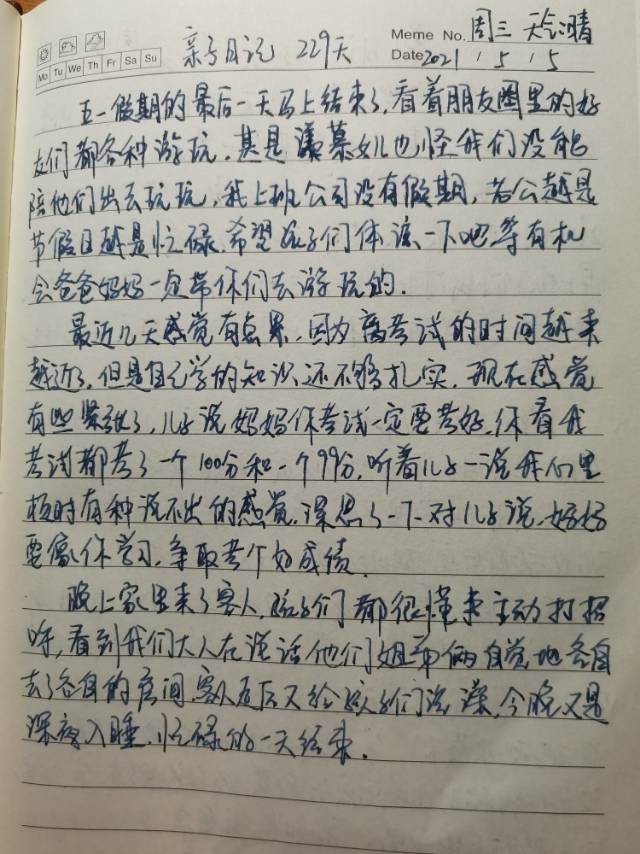 亲子日记 229天
Meme No. 周三 天气晴
Mo Tu We Th Fr Sa Su
Date 2021 / 5 / 5
五一假期的最后一天马上结束了,看着朋友圈里的好
友们都各种游玩,甚是羡慕,女儿也怪我们没能
陪他们出去玩玩,我上班公司没有假期,老公越是
节假日越是忙碌,希望孩子们体谅一下吧,等有机
会爸爸妈妈一定带你们去游玩的.
最近几天感觉有点累,因为离考试的时间越来
越近了,但是自己学的知识还不够扎实,现在感觉
有些紧张了,儿子说妈妈你考试一定要考好,你看我
考试都考了一个100分和一个99分,听着儿子一说我心里
顿时有种说不出的感觉,深思了一下对儿子说,妈妈
要像你学习,争取考个好成绩.
晚上家里来了客人,孩子们都很懂事主动打招
呼,看到我们大人在说话他们姐弟俩自觉地各自
去了各自的房间,客人走后又给孩子们洗澡,今晚又是
深夜入睡,忙碌的一天结束.